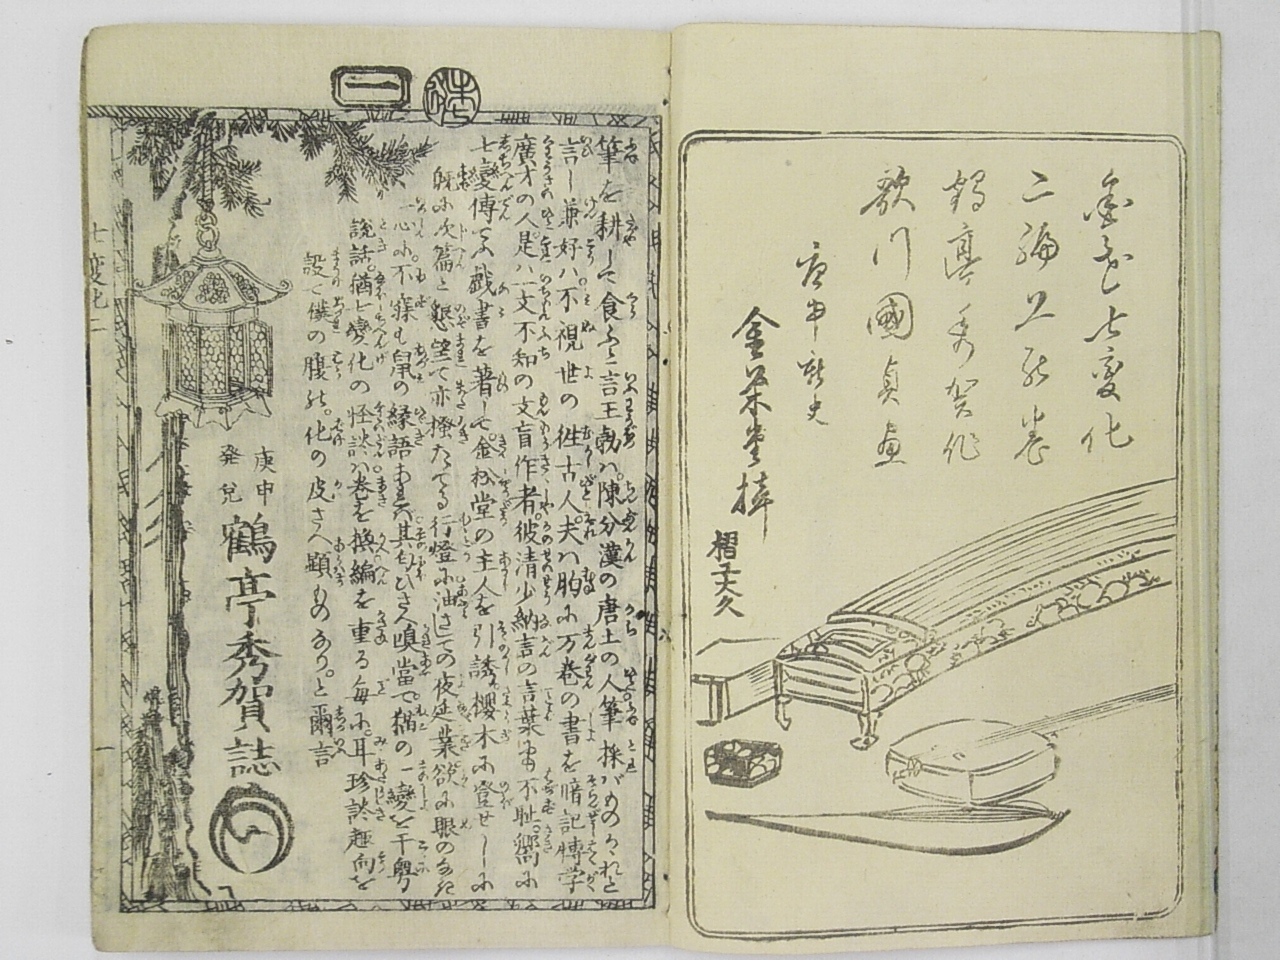 七変化
二編上の巻
鶴亭秀賀作
歌川國貞画
庚申新史
金松堂梓
摺工大久
一
筆を耕して食ふと言王勃ハ。陳分漢の唐土の人筆採がめのうれと
言し兼好ハ。不視世の徃古人。夫ハ胸に万巻の書を暗記博学
廣才の人是ハ一文不知の文盲作者。彼清少納言の言葉に不耻。嚮に
七變傳てふ戯書を著して。金松堂の主人を引誘。櫻木に登せしに
既に次篇と懇望て亦搔たてる行燈に油さしての夜延業欲に眼のなき
一心に不寐も鼠の縁語
説話。猶七變化の怪談ハ巻を換編を重る毎に。耳珍敷趣向を
設て僕の腹の。化の皮さへ顕ものなり。と爾言
庚申
発兌
鶴亭秀賀誌
七変化二
一